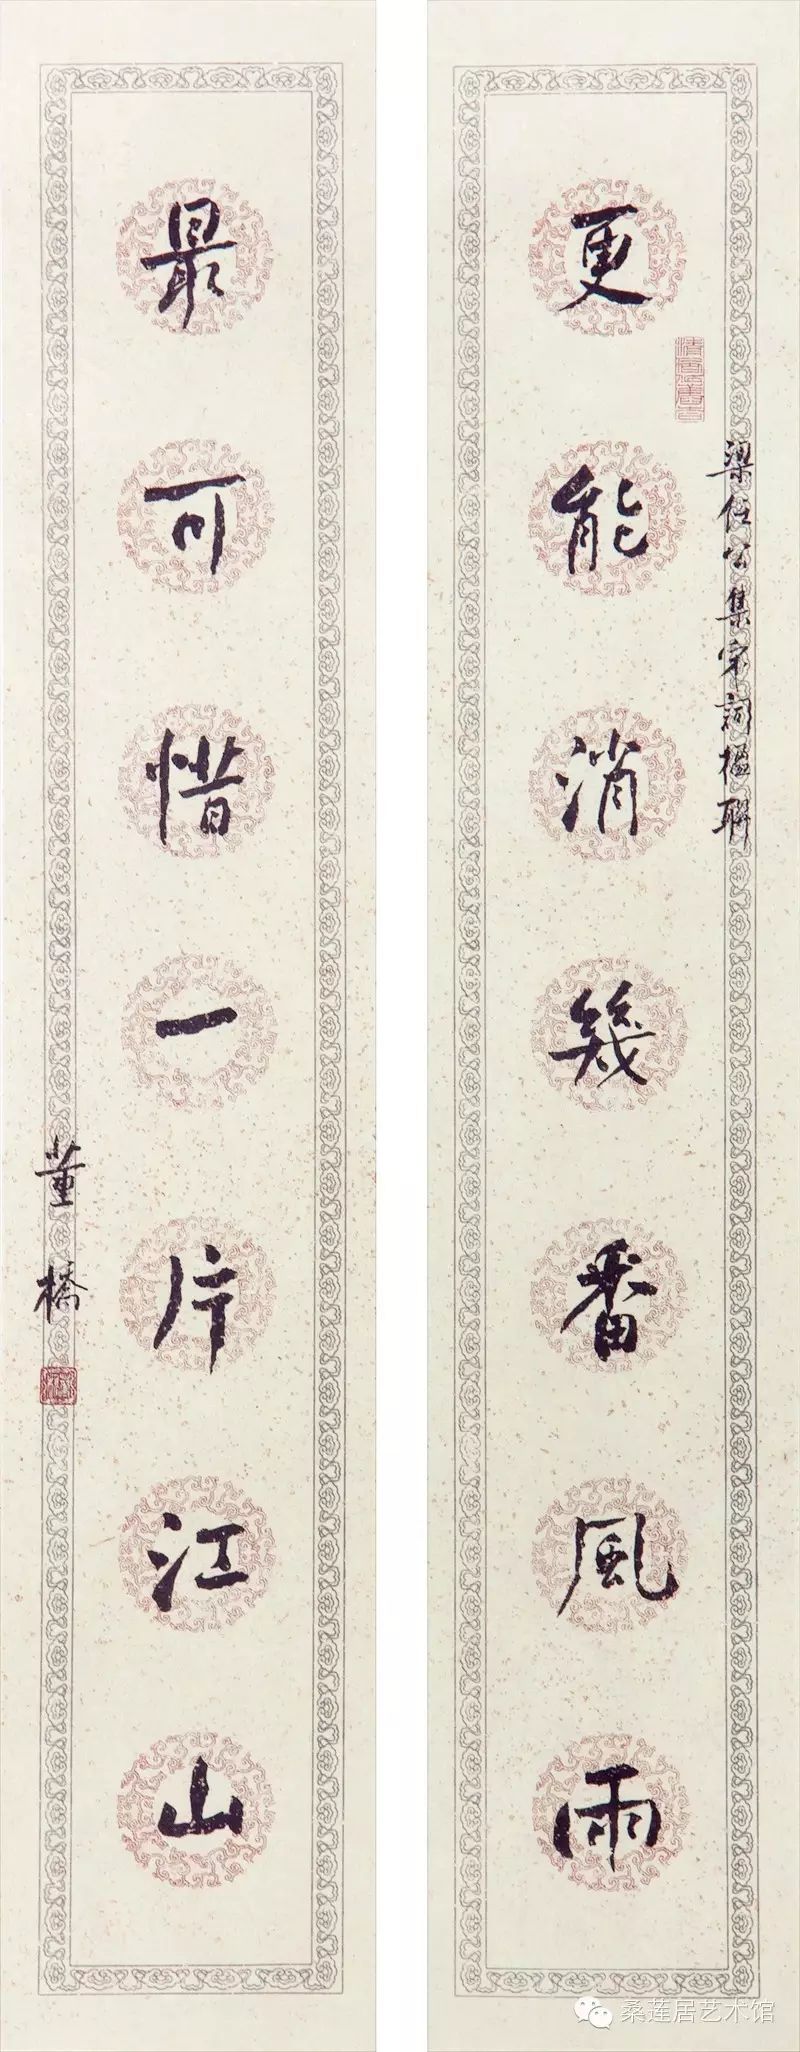 更能消幾番風雨
梁任公集宋詞楹聯
最可惜一片江山
董橋
桑莲居艺术馆